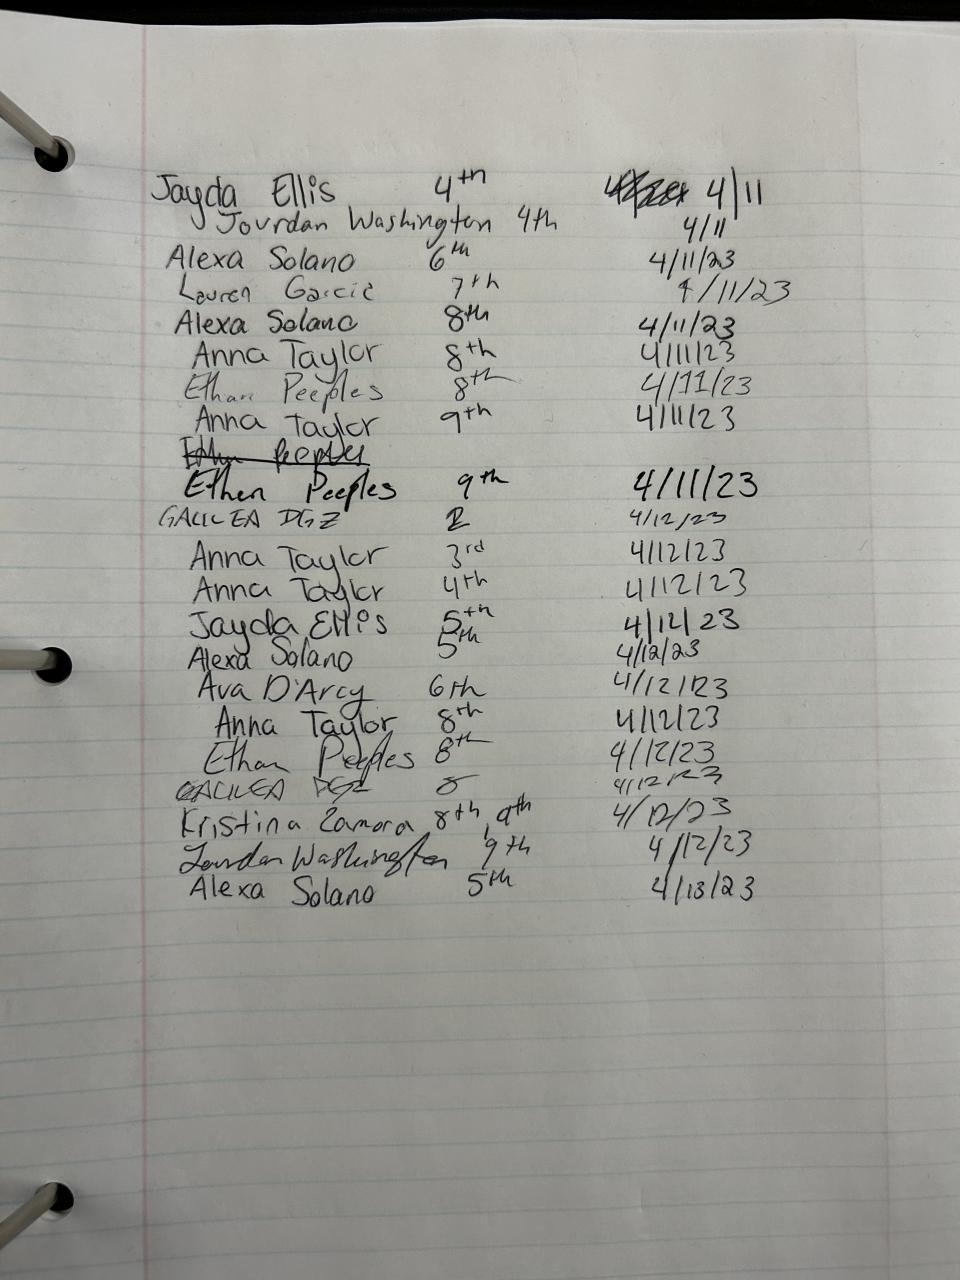 Jayda Ellis 4th 4/11
Jourdan Washington 4th 4/11
Alexa Solano 6th 4/11/23
Lauren Garcia 7th 4/11/23
Alexa Solano 8th 4/11/23
Anna Taylor 8th 4/11/23
Ethan Peeples 8th 4/11/23
Anna Taylor 9th 4/11/23
Ethan Peeples
Ethan Peeples 9th 4/11/23
GALILEA DGZ 2 4/12/23
Anna Taylor 3rd 4/12/23
Anna Taylor 4th 4/12/23
Jayda Ellis 5th 4/12/23
Alexa Solano 5th 4/12/23
Ava D'Arcy 6th 4/12/23
Anna Taylor 8th 4/12/23
Ethan Peeples 8th 4/12/23
GALILEA DGZ 8 4/12/23
Kristina Zamora 8th, 9th 4/12/23
Jourdan Washington 9th 4/12/23
Alexa Solano 5th 4/13/23